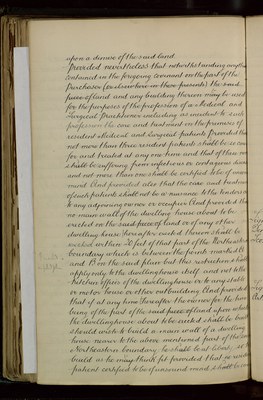 upon a demise of the said land
Provided nevertheless that notwithstanding anything
contained in the foregoing covenant on the part of the
Purchaser (or elsewhere in these presents) the said
piece of land and any building thereon may be used
for the purposes of the profession of a Medical and
Surgical Practitioner including as incident to such
profession the care and treatment on the premises of
resident Medical and Surgical patients Provided that
not more than three resident patients shall be so cared
for and treated at any one time and that of them none
shall be suffering from infectious or contagious disease
and not more than one shall be certified to be of unsound
mind And provided also that the care and treatment
of such patients shall not be a nuisance to the Vendors or
to any adjoining owner or occupier And provided that
no main wall of the dwelling house about to be
erected on the said piece of land or of any other
dwelling house hereafter erected thereon shall be
erected within 20 feet of that part of the Northeastern
boundary which is between the points marked A
and B on the said plan but this restriction shall
apply only to the dwellinghouse itself and not to the
kitchen offices of the dwellinghouse or to any stable
or motor house or other outbuilding And provided
that if at any time thereafter the owner for the time
being of the part of the said piece of land upon which
the dwellinghouse about to be erected shall be built
should wish to build a main wall of a dwelling
house nearer to the above mentioned part of the said
Northeastern boundary he shall be at liberty to
build as he may think fit provided that no resident
patient certified to be of unsound mind shall be